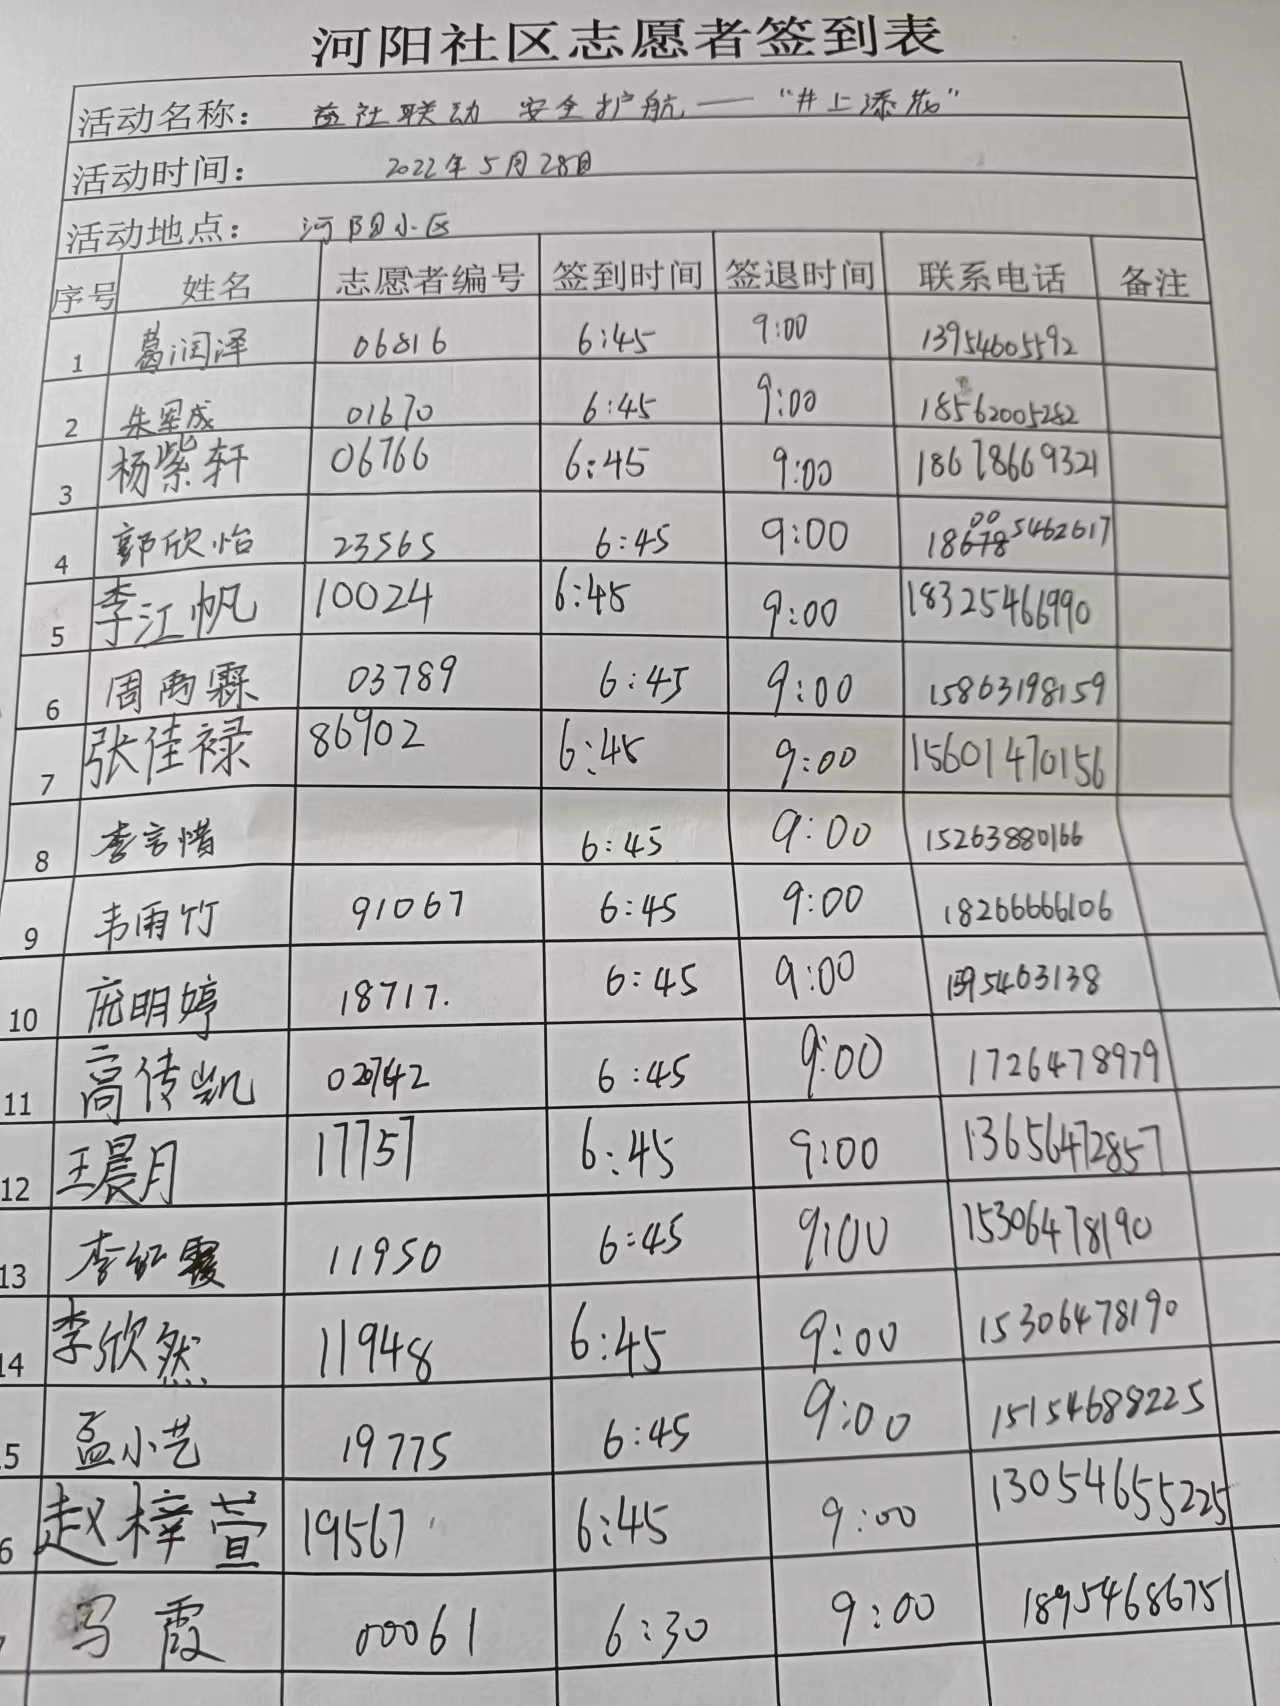 河阳社区志愿者签到表
活动名称： 益社联动 安全护航——“井上添花”
活动时间： 2022年5月28日
活动地点： 河阳小区
序号 姓名 志愿者编号 签到时间 签退时间 联系电话 备注
1 葛润泽 06816 6:45 9:00 13954605592
2 朱军成 01670 6:45 9:00 18562005282
3 杨紫轩 06766 6:45 9:00 18678669321
4 郭欣怡 23565 6:45 9:00 186005462617
5 李江帆 10024 6:45 9:00 18325466990
6 周雨霖 03789 6:45 9:00 15863198159
7 张佳禄 86902 6:45 9:00 15601470156
8 李言惜 6:45 9:00 15263880166
9 韦雨竹 91067 6:45 9:00 18266666106
10 庞明婷 18717. 6:45 9:00 1395463138
11 高传凯 6:45 9:00 1726478979
12 王晨月 17757 6:45 9:00 13656472857
13 李红霞 11950 6:45 9:00 15306478190
14 李欣然 11948 6:45 9:00 15306478190
5 孟小艺 19775 6:45 9:00 15154688225
6 赵梓萱 19567 6:45 9:00 13054655225
马霞 00061 6:30 9:00 18954686751